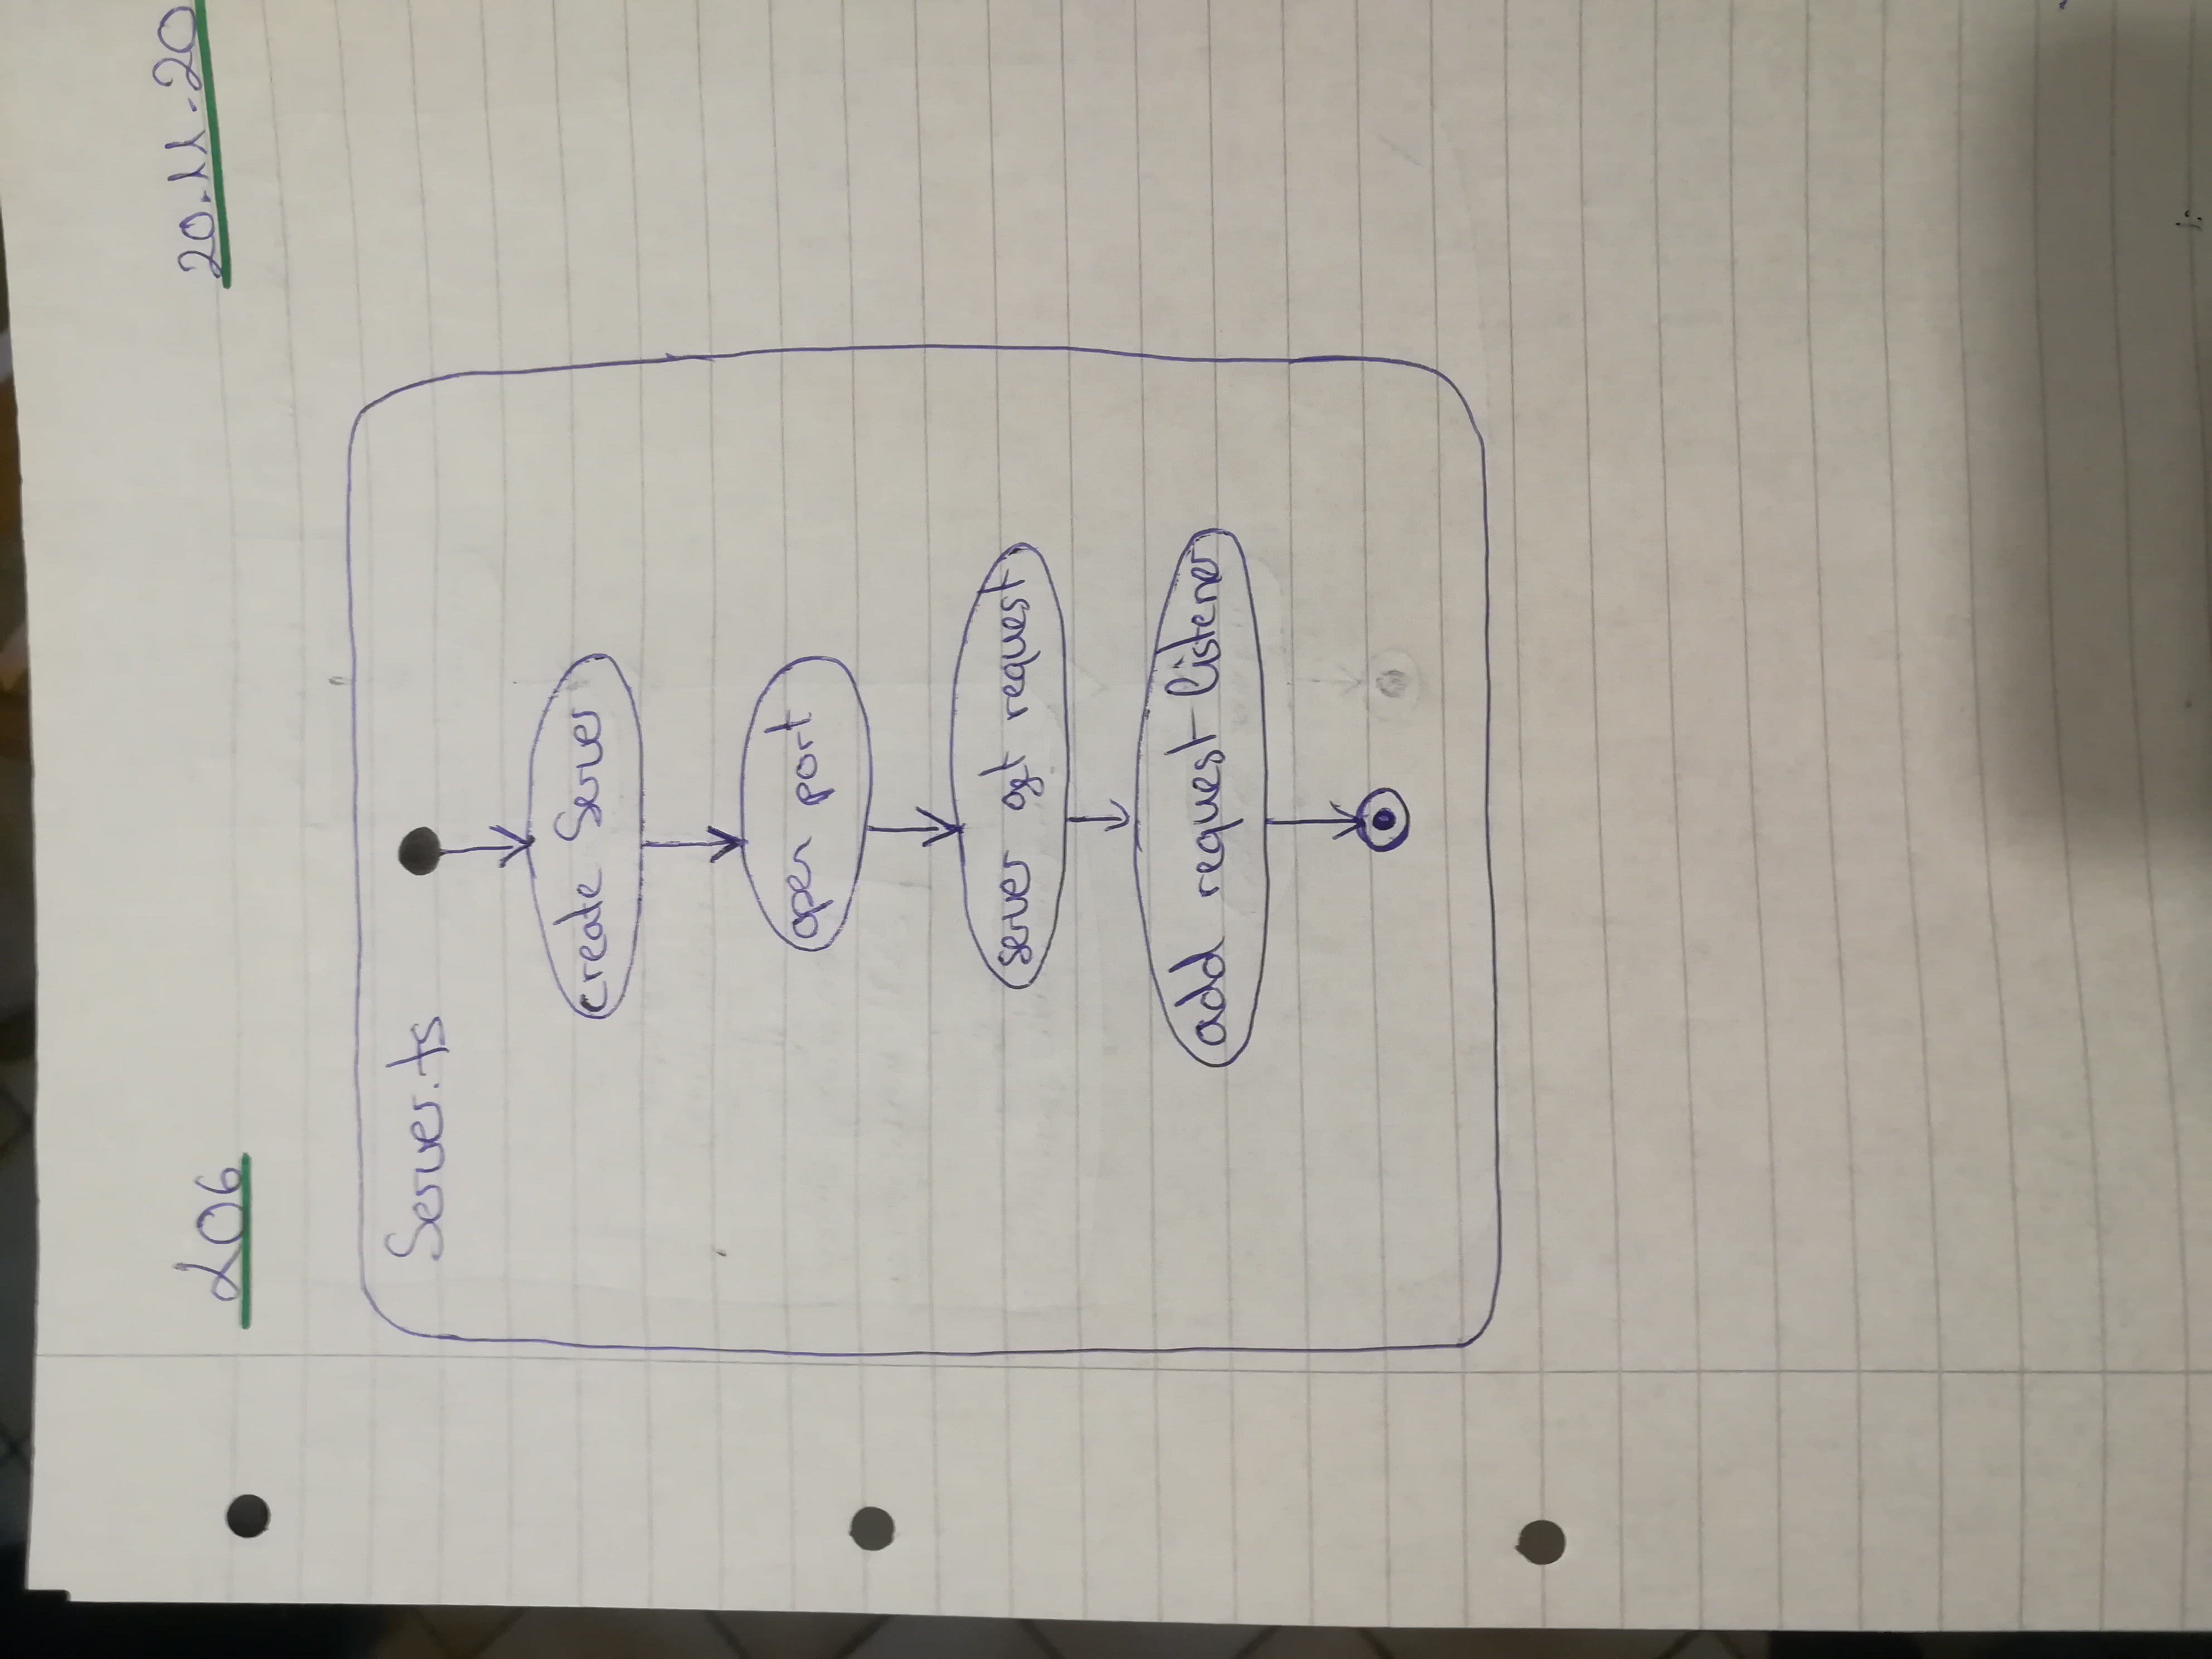 L06
20.11.20
Server.ts
create Server
open port
server get request
add request listener